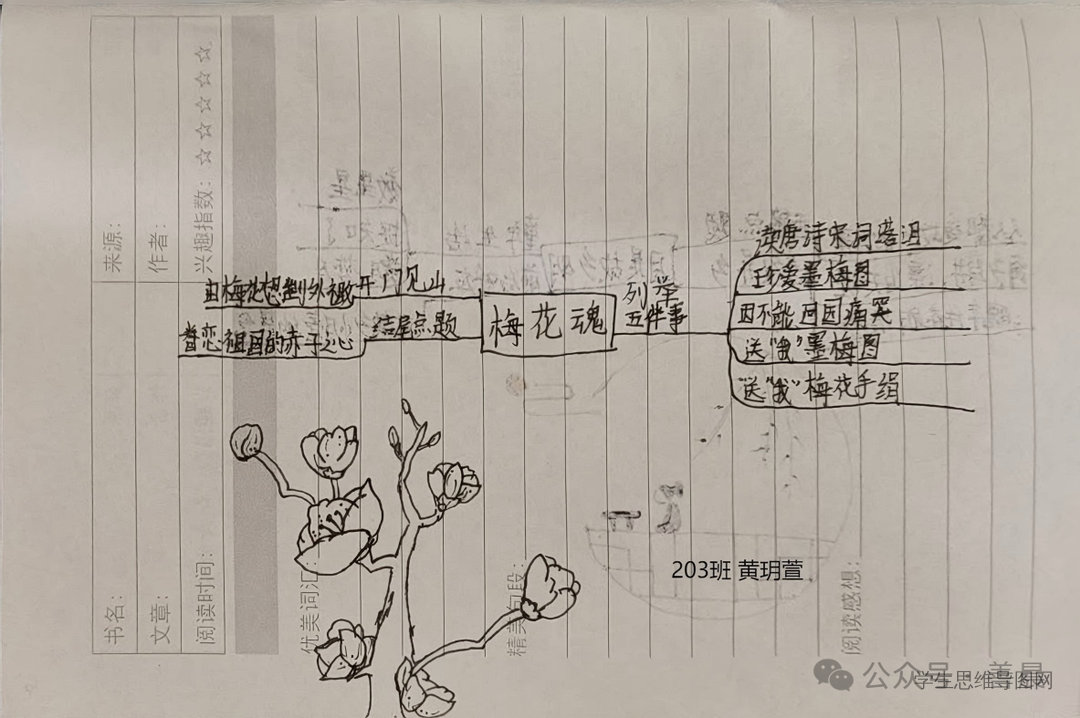 由梅花想到外祖父
开门见山
眷恋祖国的赤子之心
结尾点题
梅花魂
列举
五件事
读唐诗宋词落泪
珍爱墨梅图
因不能回国痛哭
送“我”墨梅图
送“我”梅花手绢
203班 黄玥萱
书名：
文章：
阅读时间：
来源：
作者：
兴趣指数：☆ ☆ ☆ ☆ ☆
优美词汇：
精美句段：
阅读感想：
公众号
学生思维导图网